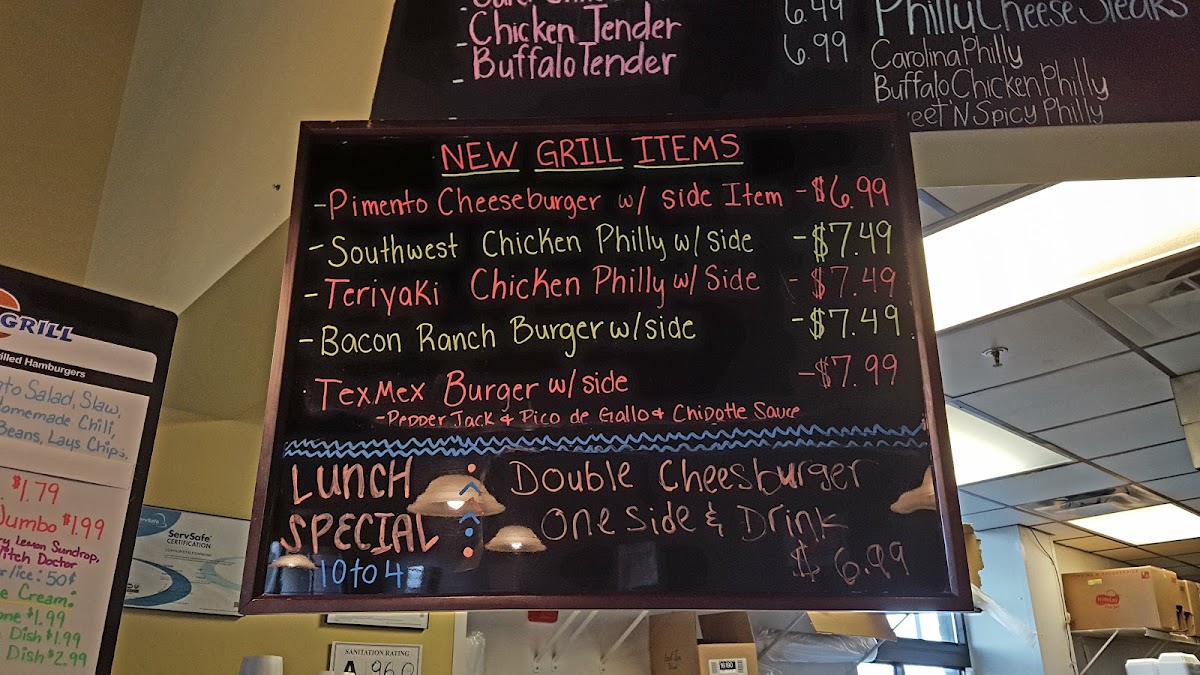 Chicken Tender
6.49
- Buffalo Tender
6.99
Philly Cheese Steaks
Carolina Philly
Buffalo Chicken Philly
'N Spicy Philly
NEW GRILL ITEMS
- Pimento Cheeseburger w/ side Item - $6.99
- Southwest Chicken Philly w/ side - $7.49
- Teriyaki Chicken Philly w/ Side - $7.49
- Bacon Ranch Burger w/side - $7.49
TexMex Burger w/ side - $7.99
- Pepper Jack & Pico de Gallo & Chipotle Sauce
LUNCH SPECIAL
10 to 4
Double Cheesburger
One Side & Drink
$ 6.99
GRILL
Hamburgers
Salad, Slaw,
omemade Chili,
Beans, Lays Chips,
$1.79
Jumbo $1.99
Lemon Sundrop,
itch Doctor
ice: 50¢
Cream:
$1.99
Dish $1.99
Dish $2.99
ServSafe
CERTIFICATION
SANITATION RATING
A 96.0